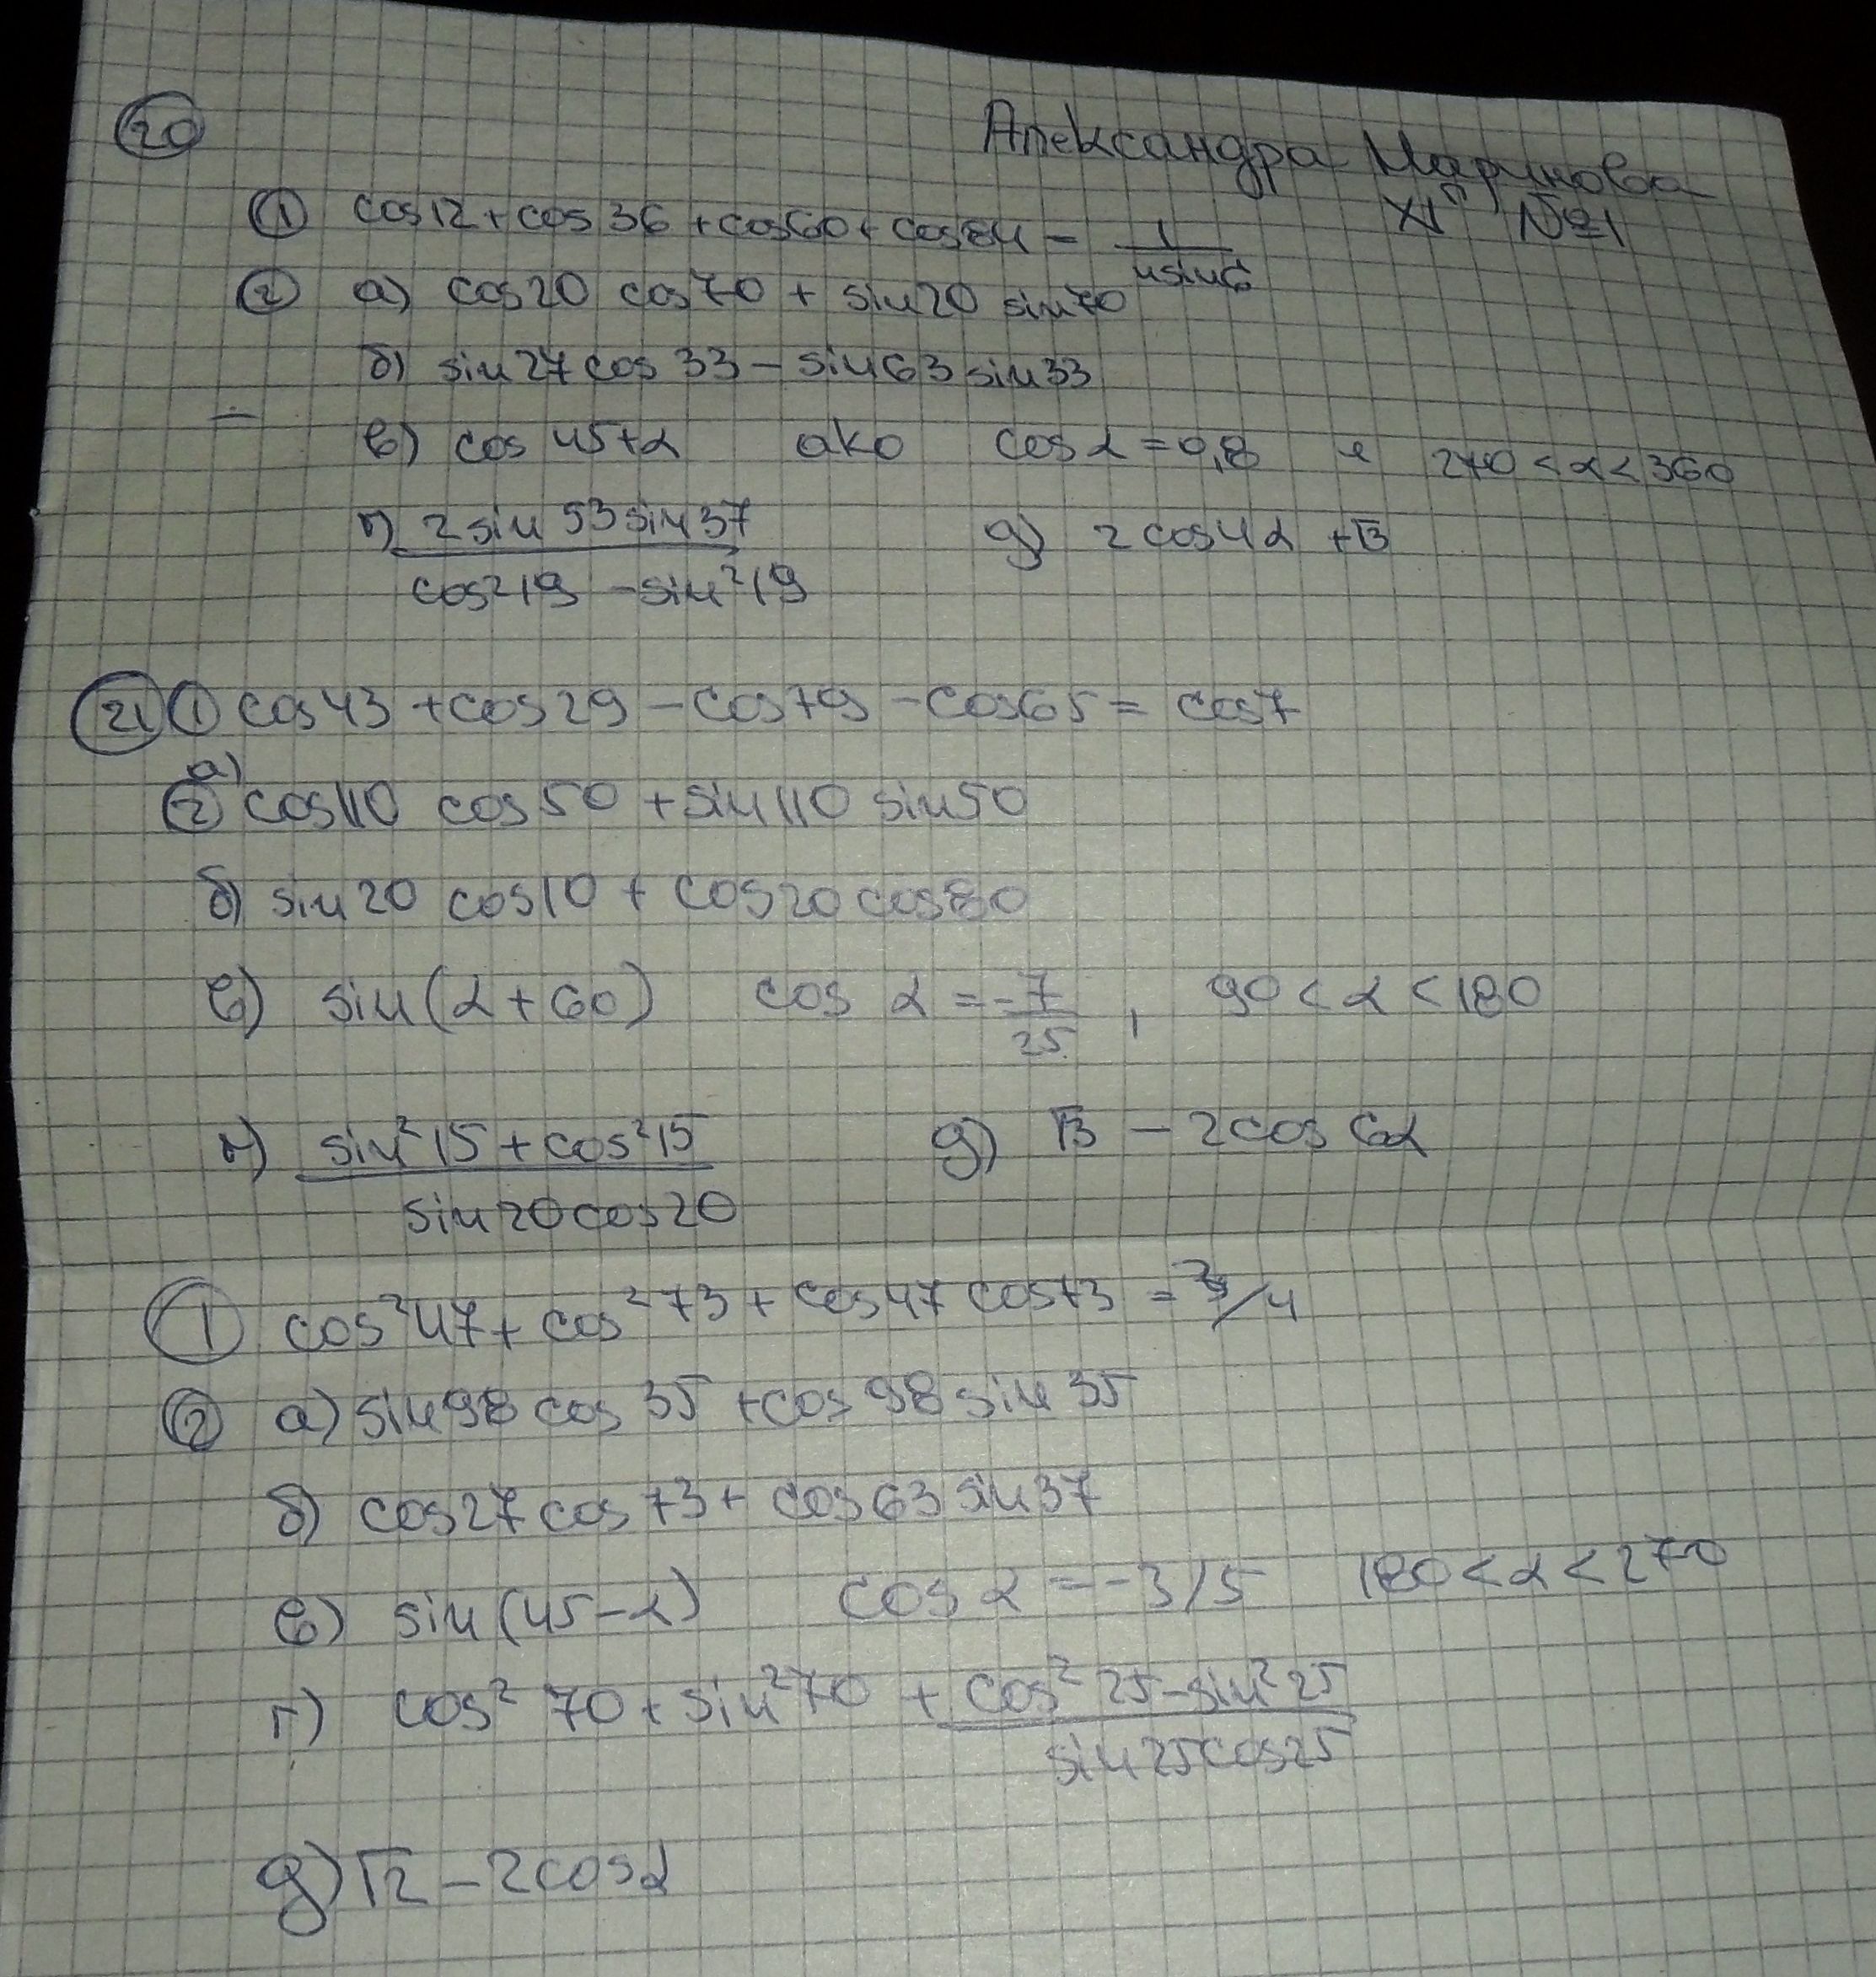 20
Александра Маринова
XIᵍ №21
① cos12+cos36+cos60+cos84 = 1/4sin6
② а) cos20 cos70 + sin20 sin70
б) sin27cos33-sin63sin33
в) cos 45+α ако cos α=0,8 и 270<α<360
г) 2sin53sin37 / cos²19 -sin²19 д) 2cos4α +√3
21 ① cos43 +cos29 -cos79 -cos65 = cos7
② а) cos110 cos50 +sin110 sin50
б) sin20 cos10 + cos20cos80
в) sin(α+60) cos α =-7/25 , 90<α<180
г) sin²15+cos²15 / sin20cos20 д) √3 - 2cos6α
① cos²47+ cos²73+cos47 cos73 = 3/4
② а) sin98 cos35 +cos98 sin35
б) cos27cos73+ cos63sin37
в) sin(45-α) cos α =-3/5 180<α<270
г) cos²70+sin²70 + cos²25-sin²25 / sin25cos25
д) √2 -2cosα